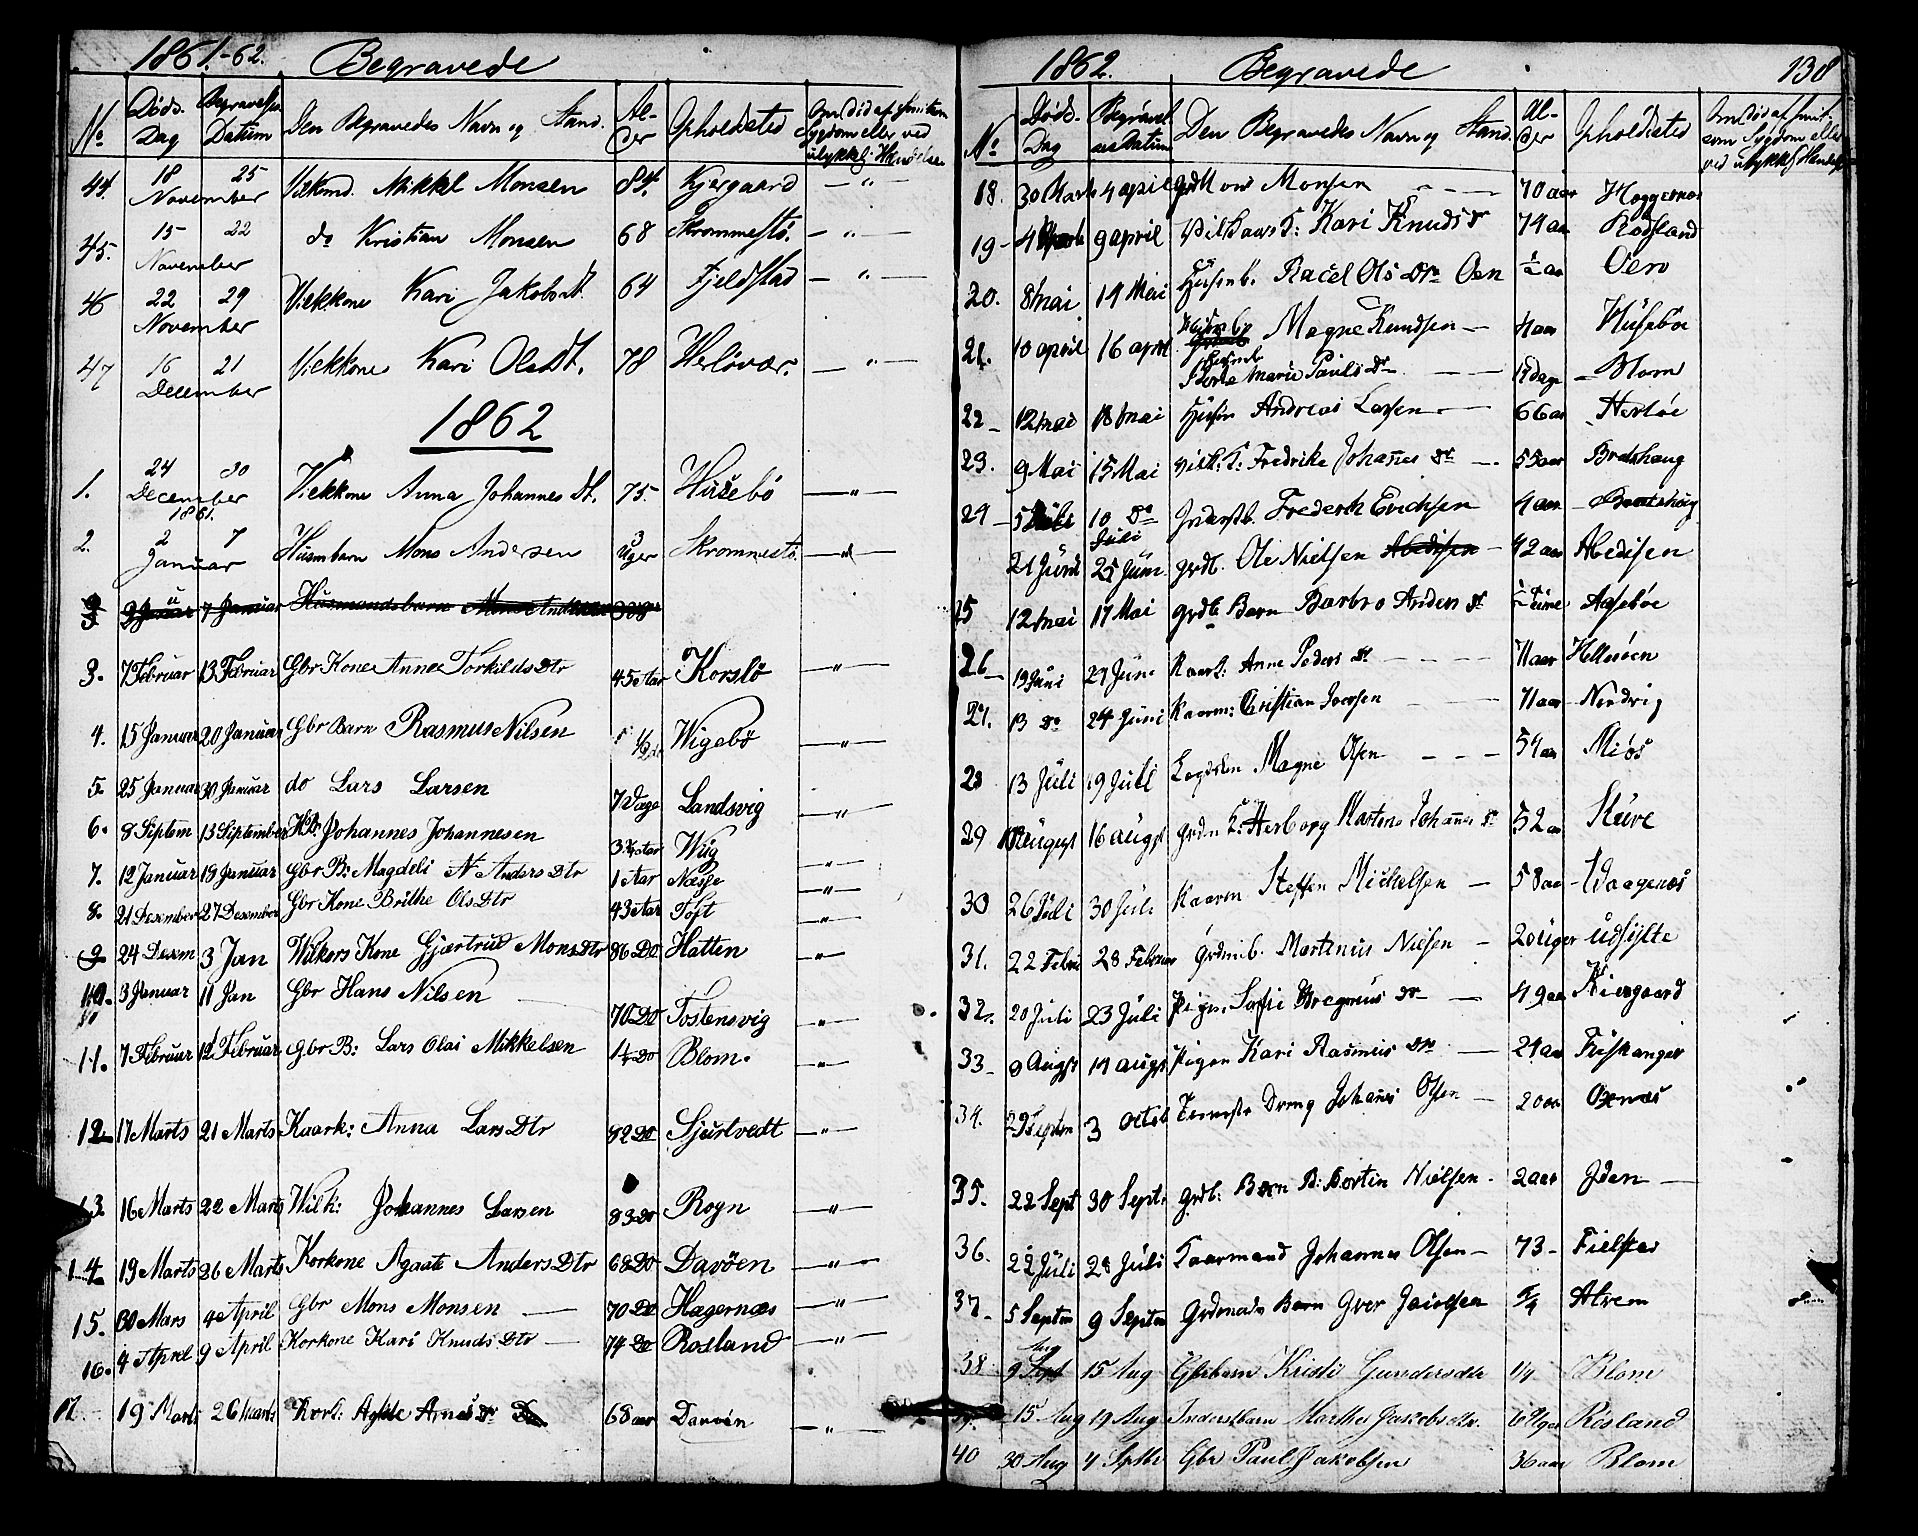 1861.-62. Begravede
No Døds. Dag Begravelses Datum Den Begravedes Navn og Stand. Al-der Opholdssted Om død af smitsom Sygdom eller ved ulykkel: Hændelse
44. 18 November 25 Vilkmd. Mikkel Monsen 84. Kjergaard — " —
45. 15 November 22 do Kristian Monsen 68 Skrommestø. — " —
46 22 November 29 Vilkkone Kari Jakobsdt. 64 Fjeldstad — " —
47 16 December 21 Vilkkone Kari Olsdt. 78 Herløvær. — " —
1862
1. 24 December 1861. 30 Vilkkone Anna Johannesdt. 75. Husebö — " —
2. 2 Januar 7 Husmbarn Mons Andersen 3 Uger Skrommestø. — " —
3 2 Januar 7 Januar Husmandsbarn Mons Andersen 3 Uger
3. 7 Februar 13 Februar Gbr Kone Anne Torkilds Dtr 45 Aar Korslö — " —
4. 15 Januar 20 Januar Gbr Barn Rasmus Nilsen 1/2 do Wigebö — " —
5. 25 Januar 30 Januar do Lars Larsen 7 Dage Landsvig — " —
6. 8 Septem 13 September Johannes Johannesen Wiig — " —
7. 12 Januar 19 Januar Gbr B: Magdeli N Anders Dtr 1 Aar Næsse — " —
8. 21 Desember 27 Desember Gbr Kone Brithe Ols Dtr 43 Aar Toft — " —
9 24 Desem 3 Jan Wilkors Kone Gjærtrud Mons Dtr 86 Do Hatten — " —
10. 3 Januar 11 Jan Gbr Hans Nilsen — 70 Do Tostensvig — " —
11. 7 Februar 12 Februar Gbr B: Lars Olai Mikkelsen Blom. — " —
12 17 Marts 21 Marts Kaark: Anna Lars Dtr 82 Do Sjurtvedt — " —
13. 16 Marts 22 Marts Wilk: Johannes Larsen 83 Do Rogn — " —
14 19 Marts 26 Marts Korkone Agaate Anders Dtr 68 Do Davöen — " —
15. 30 Mars 4 April Gbr Mons Monsen — 70 Do Hagernæs — " —
16. 4 April 9 April Korkone Kari Knuds Dtr — 74 Do Rosland — " —
17 19 Marts 26 Marts Kork: 68 aar Davöen — " —
1862. Begravede 138
No Døds. Dag Begravelses Datum Den Begravedes Navn og Stand. Al-der Opholdssted Om død af smitsom Sygdom eller ved ulykkel Hændelse
18. 30 Marts 4 april Mons Monsen — 70 aar Haggernæs
19 4 9 april Vilkaars K: Kari Knuds Dr 74 aar Rosland
20. 8 mai 14 Mai Husmb. Racel Ols Dr Oen 1/2 aar Oen
21. 10 april 16 april Husmb Magne Knudsen — 4 aar Husebøe
Husmb Marie Pauls Dr — dage Blom
22 12 mai 18 mai Husm Andreas Larsen — 66 aar Herløe
23. 9 Mai 15 Mai Vilk: K: Fredrike Johanes Dr — 55 aar Bratshaug
24 5 Juli 10 Do Juli Inderstb. Frederik Erichsen 4 aar Bratshaug
21 Juni 25 Juni grdb. Ole Nielsen Abedissen — 42 aar Abedissen
25 12 mai 17 Mai grdb Barn Barbro Anders Dr Aasebøe
26 19 Juni 27 Juni Kaark: Anne Peders Dr — 71 aar Hellesøen
27. 13 Do 24 Juni Kaarm: Christian — 71 aar
28 13 Juli 19 Juli Magne Olsen — 54 aar Miös
29 10 August 16 augst grdm K: Herborg Martens Johanes Dr 52 aar Stüre
30 26 Juli 30 Juli Kaarm Steffen Michelsen — 58 aar Vaagenæs
31. 22 Febru 28 Februar grdmb. Martinus Nielsen — 20 uger udsylte
32. 20 Juli 23 Juli Pigen Sofie Gregorius Dr — 49 aar Kiergaard
33. 9 Augst 14 augst Pigen Kari Rasmus Dr — 24 aar
34. 29 Septem 3 octob Dreng Johanes Olsen — 20 aar Oxnæs
35. 22 Sept 30 Sept. grdb: Barn Nielsen. 2 aar Iden
36. 22 Juli 28 Juli Kaarmand Johannes Olsen — 73 — Fielstad
37. 5 Septem 9 Septem Grdmands Barn 5/4 Alrem
38 9 Aug 15 Aug Gbrbarn Kristi Gundersdtr 1/4 Blom
15 Aug 19 Aug Inderstbarn Marthe Jakobsdtr. 6 Uger Risland
40 30 Aug 4 Septbr Gbr Paul Jakobsen 36 aar Blom